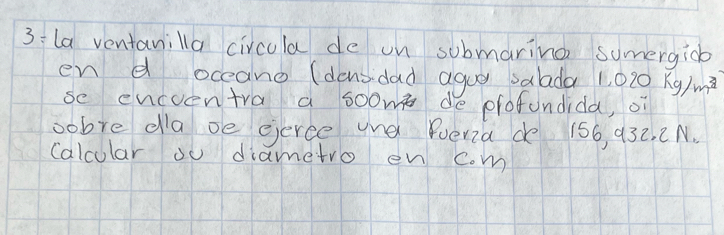 3=la ventanilla circula de un submarino sumergido
en el oceano (densidad agua salada 1,020 Kg/m³
se encuentra a 500m de profundida, si
sobre ella se ejerce una Fuerza de 156,932.2 N.
Calcular su diametro en c.m